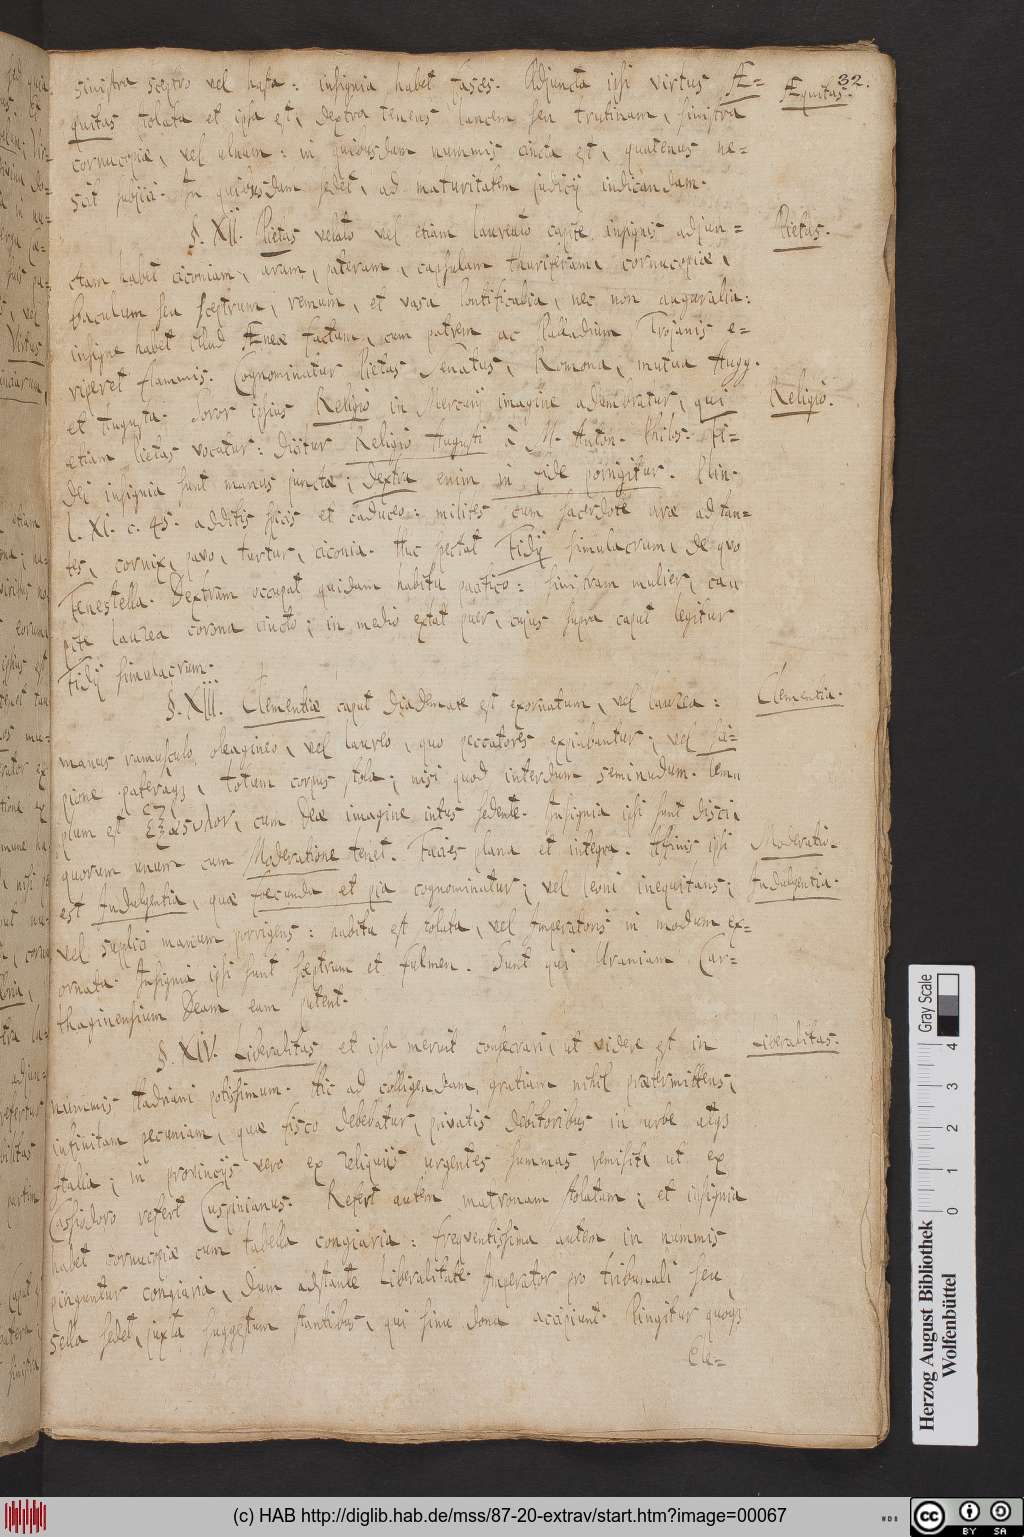 32.
sinistra sceptro vel hasta: insignia habet fasces. Adjuncta ipsi virtus Æ=
Æquitas.
quitas stolata et ipsa est, dextra tenens lancem seu trutinam, sinistra
cornucopiæ, vel ulnam: in quibusdam nummis cincta est, quatenus ne=
scit In quibusdam sedet, ad maturitatem judicij indicandam.
§. XII. Pietas velato vel etiam laureato capite insignis adjun=
Pietas.
ctam habet ciconiam, aram, pateram, capsulam thuriferam, cornucopiæ,
baculum seu sceptrum, remum, et vasa Pontificalia, nec non auguralia:
insigne habet illud Æneæ factum, cum patrem ac Palladium Trojanis e=
riperet flammis. Cognominatur Pietas Senatus, Romona, mutua Augg.
et Augusta. Soror ipsius Religio in Mercurij imagine adumbratur, qui
Religio.
etiam Pietas vocatur: dicitur Religio Augusti à M. Anton. Philos. Fi=
dei insignia sunt manus junctæ; dextra enim in fide porrigitur. Plin.
l. XI. c. 45. additis spicis et caduceo: milites cum sacerdote aræ adstan=
tes, cornix, pavo, turtur, ciconia. Huc spectat Fidij simulacrum, de quo
Fenestella. Dextram occupat quidam habitu pactico: sinistram mulier, ca
pite laurea corona cincto; in medio extat puer, cujus supra caput legitur
Fidij simulacrum.
§. XIII. Clementiæ caput diademate est exornatum, vel laurea:
Clementia.
manus ramusculo oleagineo, vel laureo, quo peccatores expiabantur; vel sci=
pione , totum corpus stola; nisi quod interdum seminudum. Tem
plum est , cum Deæ imagine intus sedente. Insignia ipsi sunt disci,
quorum unum cum Moderatione tenet. Facies plana et integra. Affinis ipsi
Moderatio.
est Indulgentia, quæ fecunda et pia cognominatur; vel leoni inequitans;
Indulgentia.
vel supplici manum porrigens: habitu est stolata, vel Imperatoris in modum ex=
ornata. Insignia ipsi sunt sceptrum et fulmen. Sunt qui Uraniam Car=
thaginensium Deam eam putent.
§. XIV. Liberalitas et ipsa meruit consecrari, ut videre est in
Liberalitas.
nummis Hadriani potissimum. Hic ad colligendam gratiam nihil prætermittens,
infinitam pecuniam, quæ fisco debebatur, privatis debitoribus in urbe atqs
Italia; in provincijs vero ex reliquiis urgentes summas remisit, ut ex
Cassiodoro refert Cuspinianus. Refert autem matronam stolatam; et insignia
habet cornucopiæ cum tabella congiaria: freqventissima autem in nummis
pinguntur congiaria, dum adstante Liberalitate Imperator pro tribunali seu
sella sedet, juxta suggestum stantibus, qui sinu dona accipiunt. Pingitur quoqs
Herzog August Bibliothek
Wolfenbüttel
0 1 2 3 4
Gray Scale
(c) HAB http://diglib.hab.de/mss/87-20-extrav/start.htm?image=00067
cc BY SA